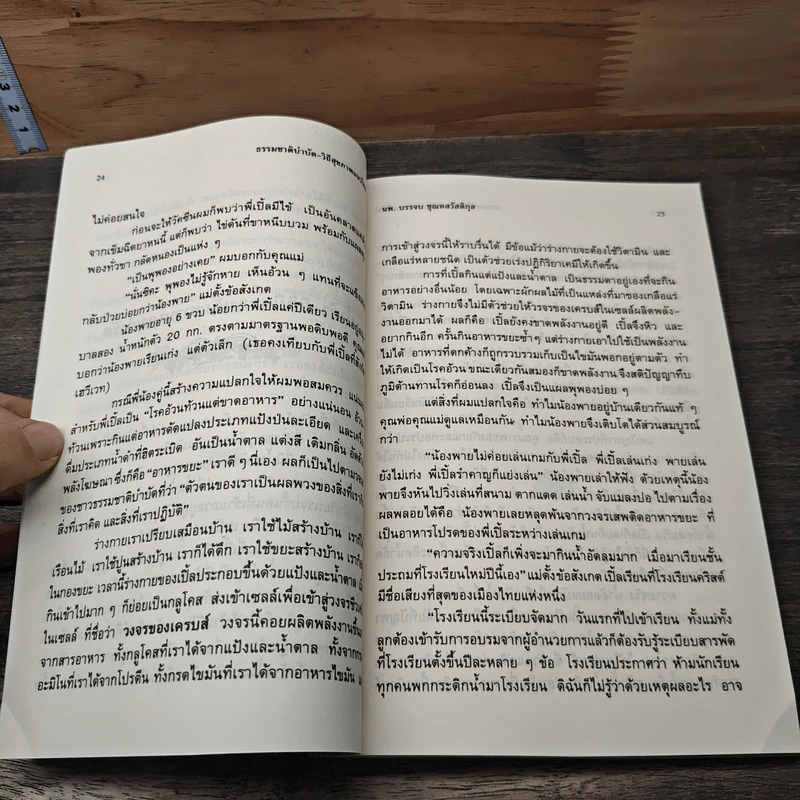 3 2 1
24
ธรรมชาติบำบัด-วิถีสุขภาพ
ไม่ค่อยสนใจ
ก่อนจะให้วัคซีนผมก็พบว่าพี่เปิ้ลมีไข้ เป็นอันคลาด
จากเข็มฉีดยาหนนี้ แต่ก็พบว่า ไข่ดันที่ขาหนีบบวม พร้อมกับ
พองทั่วขา กลัดหนองเป็นแห่ง ๆ
“เป็นพุพองอย่างเคย” ผมบอกกับคุณแม่
“นั่นซิคะ พุพองไม่รู้จักหาย เห็นอ้วน ๆ แทนที่จะแข็งแรง
กลับป่วยบ่อยกว่าน้องพาย” แม่ตั้งข้อสังเกต
น้องพายอายุ 6 ขวบ น้อยกว่าพี่เปิ้ลแค่ปีเดียว เรียนอยู่
บาลสอง น้ำหนักตัว 20 กก. ตรงตามมาตรฐานพอดิบพอดี
บอกว่าน้องพายเรียนเก่ง แต่ตัวเล็ก (เธอคงเทียบกับพี่เปิ้ลที่
เฮวีเวท)
กรณีพี่น้องคู่นี้สร้างความแปลกใจให้ผมพอสมควร
สำหรับพี่เปิ้ลเป็น “โรคอ้วนท้วนแต่ขาดอาหาร” อย่างแน่นอน
ท้วนเพราะกินแต่อาหารดัดแปลงประเภทแป้งป่นละเอียด และ
ดื่มประเภทน้ำดำที่ฮิตระเบิด อันเป็นน้ำตาล แต่งสี เติมกลิ่น
พลังโฆษณา ซึ่งก็คือ “อาหารขยะ” เราดี ๆ นี่เอง ผลก็เป็นไปตาม
ของชาวธรรมชาติบำบัดที่ว่า “ตัวตนของเราเป็นผลพวงของสิ่งที่เรา
สิ่งที่เราคิด และสิ่งที่เราปฏิบัติ”
ร่างกายเราเปรียบเสมือนบ้าน เราใช้ไม้สร้างบ้าน
เรือนไม้ เราใช้ปูนสร้างบ้าน เราก็ได้ตึก เราใช้ขยะสร้างบ้าน
ในกองขยะ เวลานี้ร่างกายของเปิ้ลประกอบขึ้นด้วยแป้งและน้ำตาล
กินเข้าไปมาก ๆ ก็ย่อยเป็นกลูโคส ส่งเข้าเซลล์เพื่อเข้าสู่วงจร
ในเซลล์ ที่ชื่อว่า วงจรของเครบส์ วงจรนี้คอยผลิตพลังงาน
จากสารอาหาร ทั้งกลูโคสที่เราได้จากแป้งและน้ำตาล
อะมิโนที่เราได้จากโปรตีน ทั้งกรดไขมันที่เราได้จากอาหารไขมัน
นพ. บรรจบ ชุณหสวัสดิกุล
25
การเข้าสู่วงจรนี้ให้ราบรื่นได้ มีข้อแม้ว่าร่างกายจะต้องใช้วิตามิน และ
เกลือแร่หลายชนิด เป็นตัวช่วยเร่งปฏิกิริยาเคมีให้เกิดขึ้น
การที่เปิ้ลกินแต่แป้งและน้ำตาล เป็นธรรมดาอยู่เองที่จะกิน
อาหารอย่างอื่นน้อย โดยเฉพาะผักผลไม้ที่เป็นแหล่งที่มาของเกลือแร่
วิตามิน ร่างกายจึงไม่มีตัวช่วยให้วงจรของเครบส์ในเซลล์ผลิตพลัง-
งานออกมาได้ ผลก็คือ เปิ้ลยังคงขาดพลังงานอยู่ดี เปิ้ลจึงหิว และ
อยากกินอีก ครั้นกินอาหารขยะซ้ำๆ แต่ร่างกายเอาไปใช้เป็นพลังงาน
ไม่ได้ อาหารที่ตกค้างก็ถูกรวบรวมเก็บเป็นไขมันพอกอยู่ตามตัว ทำ
ให้เกิดเป็นโรคอ้วน ขณะเดียวกันสมองก็ขาดพลังงาน จึงสติปัญญาทึบ
ภูมิต้านทานโรคก็อ่อนลง เปิ้ลจึงเป็นแผลพุพองบ่อย ๆ
แต่สิ่งที่ผมแปลกใจคือ ทำไมน้องพายอยู่บ้านเดียวกันแท้ ๆ
คุณพ่อคุณแม่ดูแลเหมือนกัน ทำไมน้องพายจึงเติบโตได้ส่วนสมบูรณ์
กว่า
“น้องพายไม่ค่อยเล่นเกมกับพี่เปิ้ล พี่เปิ้ลเล่นเก่ง พายเล่น
ยังไม่เก่ง พี่เปิ้ลรำคาญก็แย่งเล่น” น้องพายเล่าให้ฟัง ด้วยเหตุนี้น้อง
พายจึงหันไปวิ่งเล่นที่สนาม ตากแดด เล่นน้ำ จับแมลงปอ ไปตามเรื่อง
ผลพลอยได้คือ น้องพายเลยหลุดพ้นจากวงจรเสพติดอาหารขยะ ที่
เป็นอาหารโปรดของพี่เปิ้ลระหว่างเล่นเกม
“ความจริงเปิ้ลก็เพิ่งจะมากินน้ำอัดลมมาก เมื่อมาเรียนชั้น
ประถมที่โรงเรียนใหม่ปีนี้เอง” แม่ตั้งข้อสังเกต เปิ้ลเรียนที่โรงเรียนคริสต์
มีชื่อเสียงที่สุดของเมืองไทยแห่งหนึ่ง
“โรงเรียนนี้ระเบียบจัดมาก วันแรกที่ไปเข้าเรียน ทั้งแม่ทั้ง
ลูกต้องเข้ารับการอบรมจากผู้อำนวยการแล้วก็ต้องรับรู้ระเบียบสารพัด
ที่โรงเรียนตั้งขึ้นปีละหลาย ๆ ข้อ โรงเรียนประกาศว่า ห้ามนักเรียน
ทุกคนพกกระติกน้ำมาโรงเรียน ดิฉันก็ไม่รู้ว่าด้วยเหตุผลอะไร อาจ